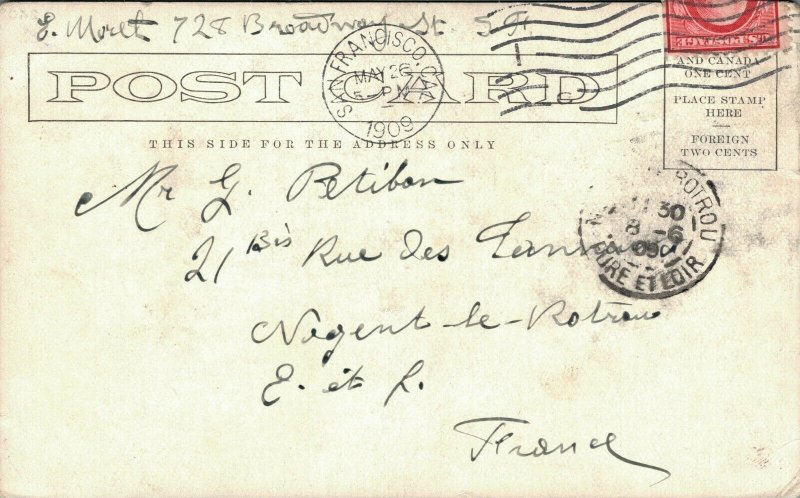 E. Moret 728 Broadway St. S. Fr.
POST CARD
THIS SIDE FOR THE ADDRESS ONLY
SAN FRANCISCO, CAL.
MAY 26
5- PM
1909
AND CANADA
ONE CENT
PLACE STAMP
HERE
FOREIGN
TWO CENTS
Mr G. Petibon
21 Bis Rue des
Nogent-le-Rotrou
E. et L.
France
ROTROU
30
8 -6
09
EURE ET LOIR